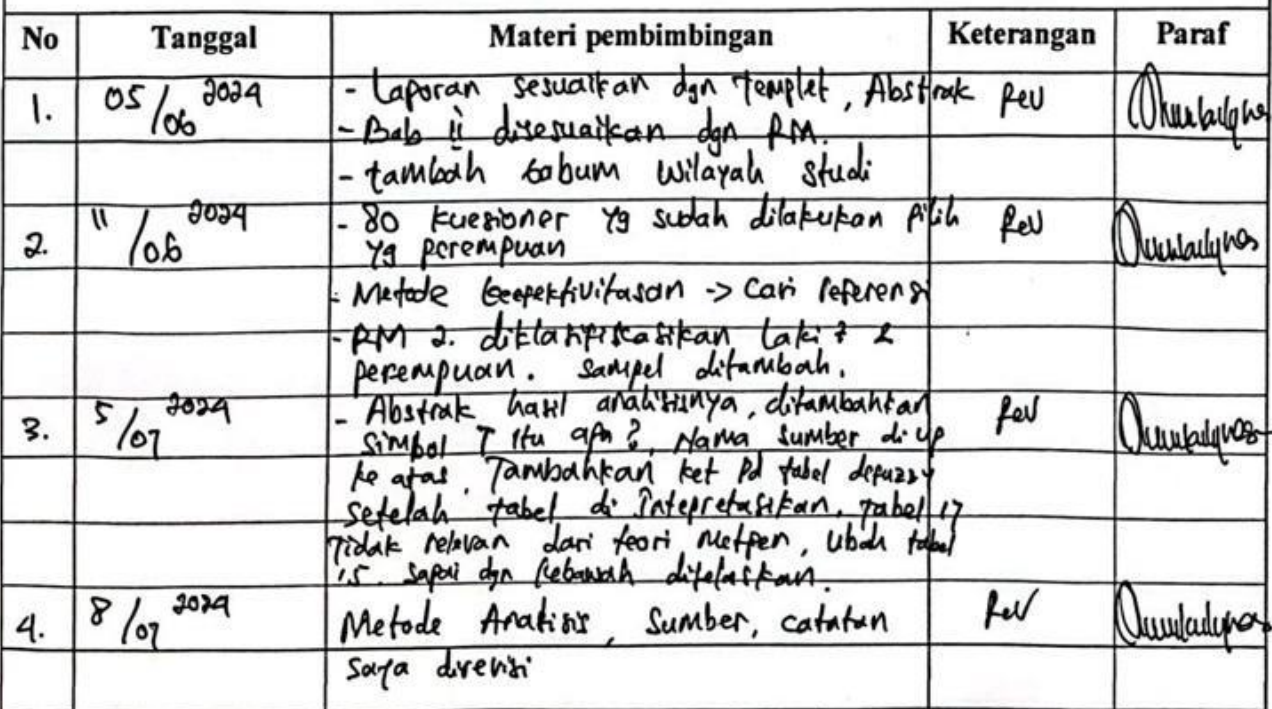 No Tanggal Materi pembimbingan Keterangan Paraf
1. 05/06 2024 - Laporan sesuaikan dgn templet, Abstrak Rev
- Bab ii disesuaikan dgn RM.
- tambah wilayah studi
2. 11/06 2024 - 80 kuesioner yg sudah dilakukan pilih Rev
yg perempuan
- Metode -> Cari referensi
- RM 2. diklasifiskasikan laki 2 &
perempuan. Sampel ditambah.
3. 5/07 2024 - Abstrak hasil analisisnya, ditambahkan Rev
simbol T itu apa?, Nama sumber di up
ke atas, Tambahkan ket pd tabel defuzzy
setelah tabel di intepretasikan, tabel 17
Tidak relevan dari teori metpen, Ubah tabel
15. dgn kebawah dijelaskan.
4. 8/07 2024 Metode Analisis, Sumber, catatan Rev
saya direvisi